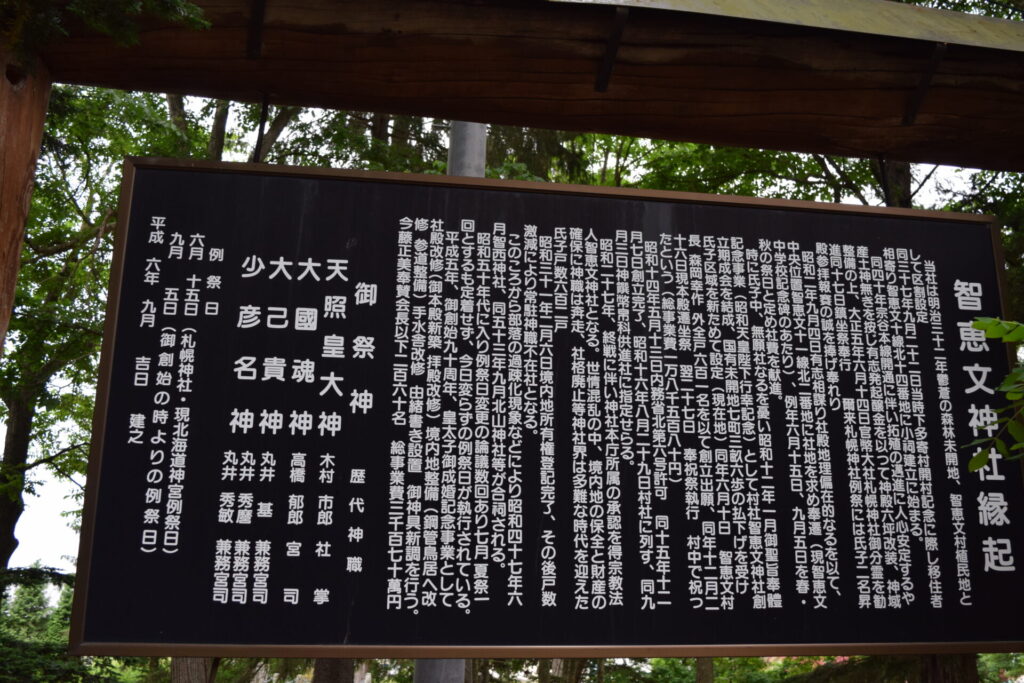 智恵文神社縁起
当社は明治三十二年鬱蒼の森林未開地、智恵文村植民地と
して区画設定
同三十七年九月二十一日当時下多寄村開村記念に際し移住者
相謀り智恵文十線北十四番地に小祠建立に始まる。
同四十年宗谷本線開通に伴い和寒の
産土神無きを按じ有志発起醵金を以って神殿六坪改装、神域
整備の上、大正五年六月十四日官幣大社札幌神社御分霊を勧
進同十七日鎮座祭斎行 爾来札幌神社例祭には氏子二名昇
殿参拝報賽の誠を捧げ奉れり
昭和二年九月四日有志相謀り社殿地理偏在的なるを以て、
中央位置智恵文十一線北二番地に社地を求め奉遷(現智恵文
中学校記念碑のあたり)、例年六月十五日、九月五日を春・
秋の祭日と定め社殿の充実を献進。
時に氏子中、無願神社なるを憂い昭和十二年一月御聖旨奉體
記念事業(昭和天皇陛下行幸記念)として村社智恵文神社創
立期成会を結成 国有未開地七町三畝六歩の払下げを受け
氏子区域を新ためて設定(現在地)同年六月十日 智恵文村
長 森岡幸作 外崇敬者六百一名を以て創立出願、同年十二月二
十六日本殿遷座祭 翌二十七日 奉祝祭執行 村中で祝っ
たという(総事業費一万八千五百八十円)
昭和十四年五月十三日内務省北第六号許可 同十五年十二
月七日創立完了、昭和十六年八月二十九日村社に列す、同九
月三日神饌幣帛料供進社に指定せらる。
昭和二十七年、終戦に伴い神社本庁所属の承認を得宗教法
人智恵文神社となる。世情混乱の中、境内地の保全と財産の
確保に神職は奔走、社格廃止等神社界は多難な時代を迎えた
氏子戸数六百二戸
昭和三十一年二月六日境内地所有権登記完了、その後戸数
激減により常駐神職不在社となる。
このころから部落の過疎化現象などにより昭和四十七年六
月智西神社、同五十三年九月北山神社等が合祀される。
昭和五十年代に入り例祭日変更の論議数回あり七月夏祭一
回とせずも定着せず、今日変らずの例祭日が執行されている。
平成五年、御創始九十周年、皇太子御成婚記念事業として
社殿改修(御本殿新築 拝殿改修)境内地整備(鋼管鳥居へ改
修 参道整備)手水舎改修 由緒書き設置 御神具新調を行う。
今藤正美奉賛会長以下二百六十名 総事業費三千百七十萬円
御祭神 歴代神職
天照皇大神 木村市郎 社掌
大國魂神 高橋郁郎 宮司
大己貴神 丸井基 兼務宮司
少彦名神 丸井秀麿 兼務宮司
丸井秀敏 兼務宮司
例祭日
六月 十五日(札幌神社・現北海道神宮例祭日)
九月 五日(御創始の時よりの例祭日)
平成 六年 九月 吉日 建之